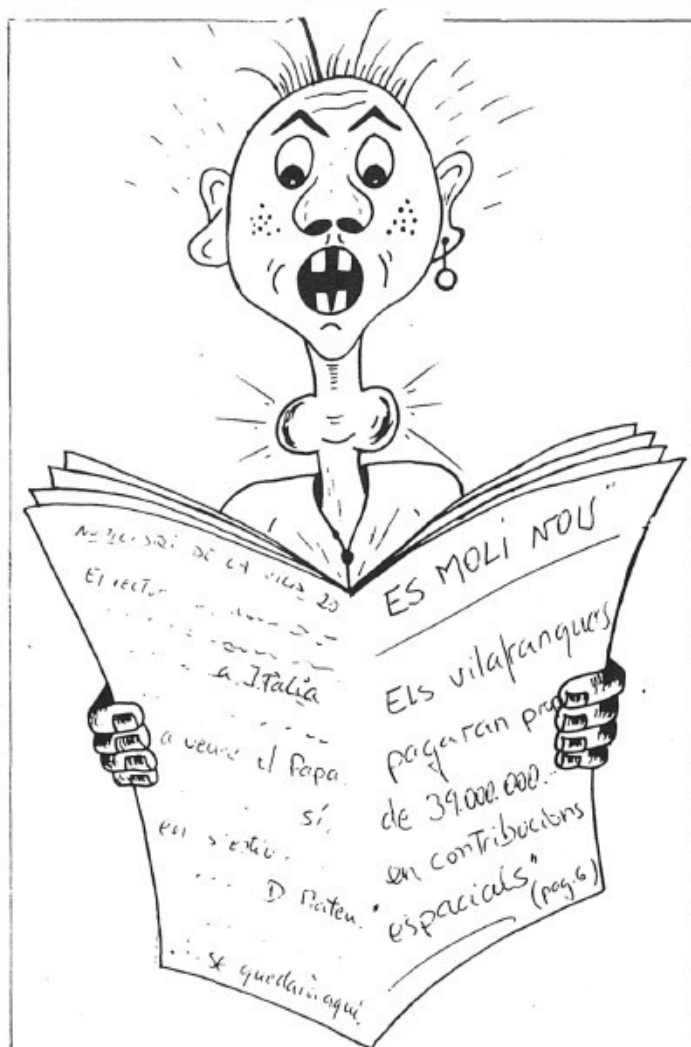 DE LA
El rector
a Italia
a veure el Papa.
sí,
en s'estiu.
D. Mateu.
se quedarà aquí.
ES MOLÍ NOU"
Els vilafranquers
pagaran prop
de 39.000.000.-
en contribucions
"espacials"
(pag.6)